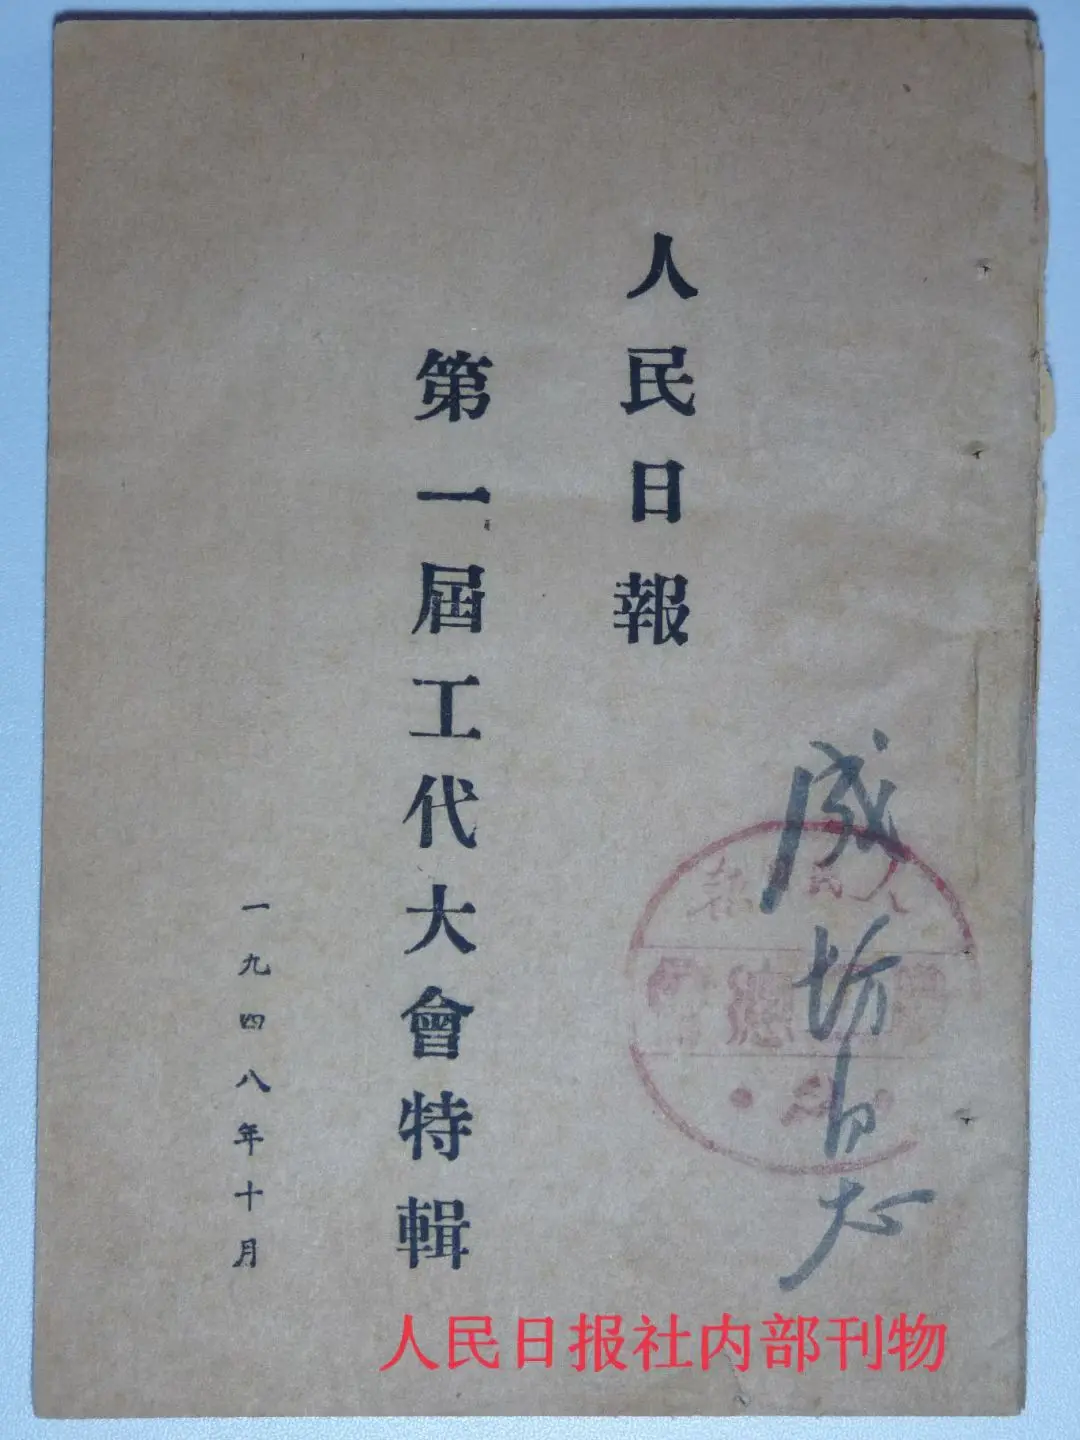 人民日報
第一屆工代大會特輯
一九四八年十月
人民日报社内部刊物